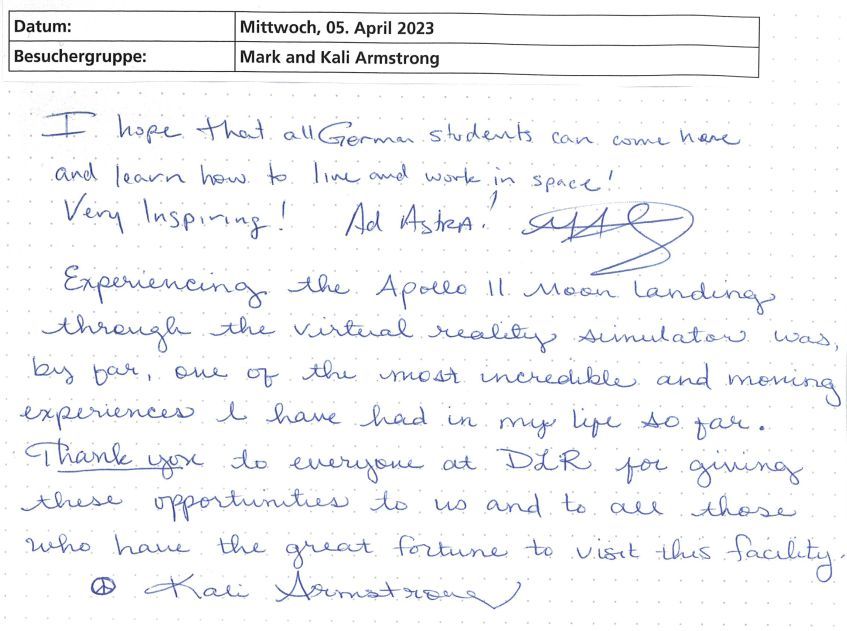 Datum: Mittwoch, 05. April 2023
Besuchergruppe: Mark and Kali Armstrong
I hope that all German students can come here
and learn how to live and work in space!
Very Inspiring! Ad Astra!
Experiencing the Apollo 11 Moon Landing
through the virtual reality simulator was,
by far, one of the most incredible and moving
experiences I have had in my life so far.
Thank you to everyone at DLR for giving
these opportunities to us and to all those
who have the great fortune to visit this facility.
☮ Kali Armstrong